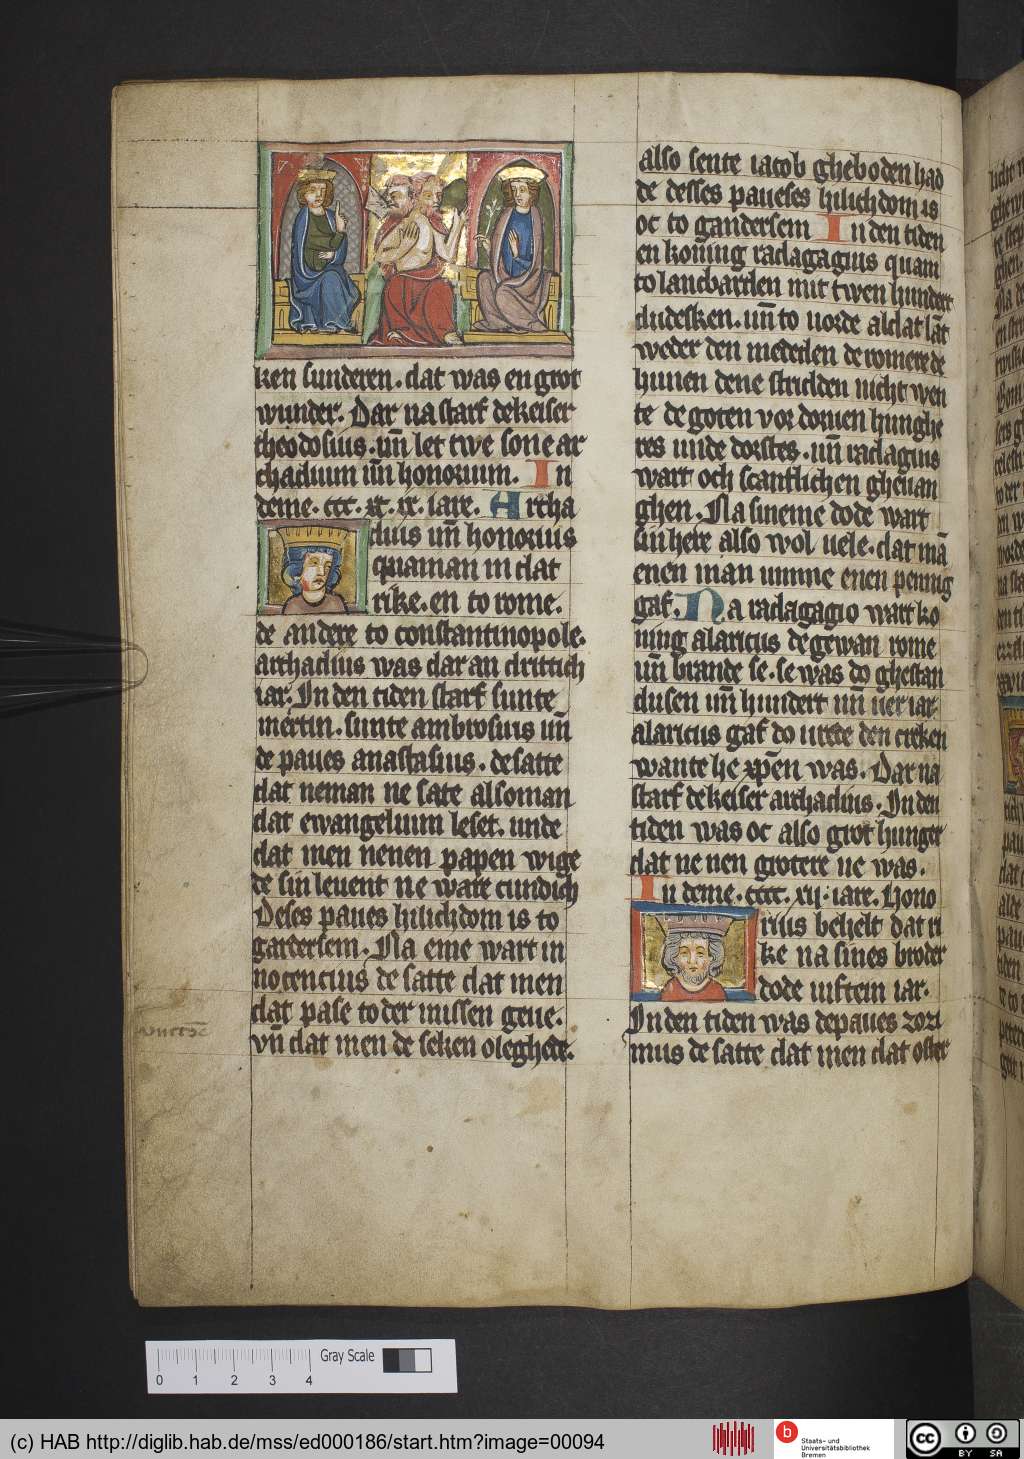 ken sunderen. dat was en grot
wunder. Dar na starf de keiser
theodosius. un̄ let twe sone ar
chadium un̄ honorium. In
deme. ccc. xc. ix. iare. Archa
dius un̄ honorius
quaman in dat
rike. en to rome.
de andere to constantinopole.
archadius was dar an drittich
iar. In den tiden starf sunte
mertin. sunte ambrosius un̄
de paues anastasius. de satte
dat neman ne sate alsoman
dat ewangelium leset. unde
dat men nenen papen wige
de sin leuent ne ware cundich
Deses paues hilichdom is to
gandersem. Na eme wart in
nocencius de satte dat men
dat pase to der missen geue.
vn̄ dat men de seken oleghede.
also sente iacob gheboden had
de desses paueses hilichdom is
oc to gandersem In den tiden
en koning radagagius quam
to lancbarden mit twen hundert
dudesken. un̄ to uorde al dat lāt
weder den mederlen de romere de
hunen dene stridden nicht wen
te de goten vor doruen hunghe
res unde dorstes. un̄ radagius
wart och scantlichen gheuan
ghen. Na sineme dode wart
sin here also wol uele. dat mā
enen man umme enen pennig
gaf. Na radagagio wart ko
ning alaricus de gewan rome
un̄ brande se. se was do ghestan
dusen un̄ hundert un̄ uer iar
alaricus gaf do urede den creken
wante he xp̄en was. Dar na
starf de keiser archadius. In den
tiden was oc also grot hunger
dat ne nen grotere ne was.
In deme. cccc. xij. iare. Hono
rius behelt dat ri
ke na sines broder
dode uiftein iar.
In den tiden was de paues zozi
mus de satte dat men dat oster
0 1 2 3 4 Gray Scale
(c) HAB http://diglib.hab.de/mss/ed000186/start.htm?image=00094
b
Staats- und
Universitätsbibliothek
Bremen
CC BY SA